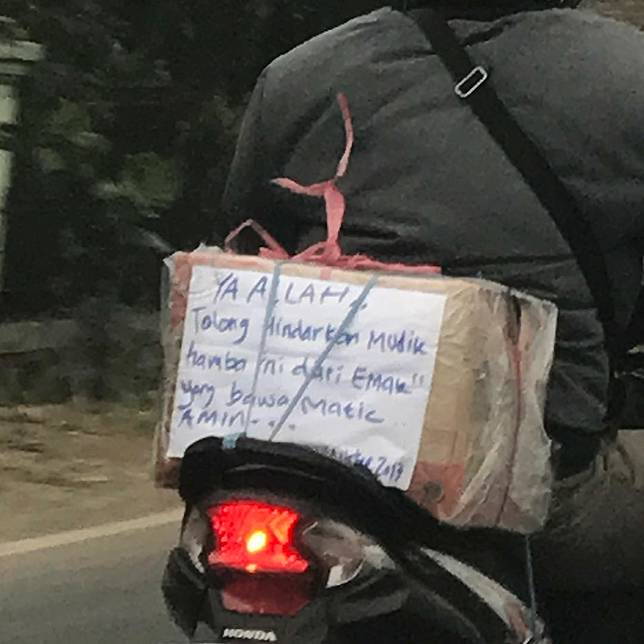 YA ALLAH..
Tolong Hindarkan Mudik
hamba ini dari EMak"
yang bawa Matic
AMIN - . .
2017
HONDA